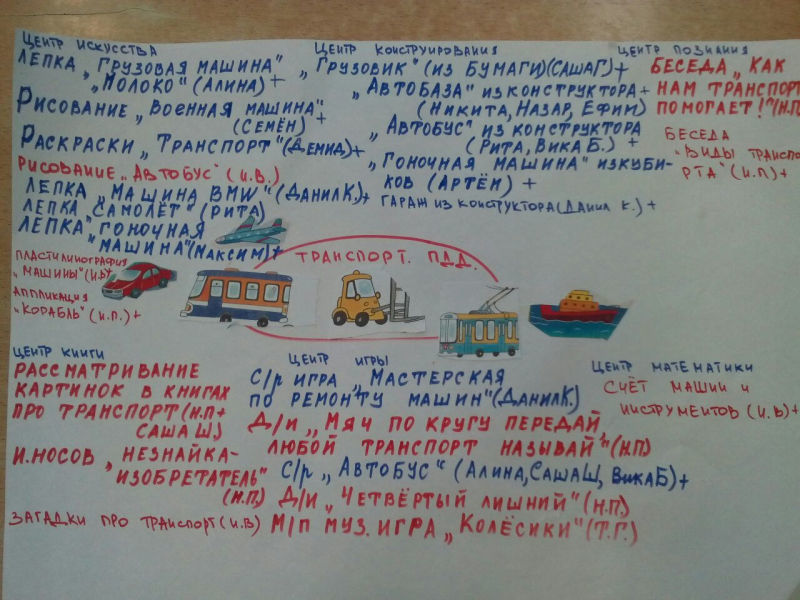 ЦЕНТР ИСКУССТВА
ЛЕПКА „ГРУЗОВАЯ МАШИНА"
„МОЛОКО" (АЛИНА) +
РИСОВАНИЕ „ВОЕННАЯ МАШИНА"
(СЕМЁН) +
РАСКРАСКИ „ТРАНСПОРТ" (ДЕМИД)+
РИСОВАНИЕ „АВТОБУС" (И.В.)
ЛЕПКА „МАШИНА BMW" (ДАНИЛ К.)+
ЛЕПКА „САМОЛЁТ" (РИТА)
ЛЕПКА „ГОНОЧНАЯ
МАШИНА" (МАКСИМ)+
ПЛАСТИЛИНОГРАФИЯ
„МАШИНЫ" (И.В)+
АППЛИКАЦИЯ
„КОРАБЛЬ" (И.П.)+
ЦЕНТР КОНСТРУИРОВАНИЯ
„ГРУЗОВИК" (ИЗ БУМАГИ)(САША Г.)+
„АВТОБАЗА" ИЗ КОНСТРУКТОРА+
(НИКИТА, НАЗАР, ЕФИМ)
„АВТОБУС" ИЗ КОНСТРУКТОРА
(РИТА, ВИКА Б.) +
„ГОНОЧНАЯ МАШИНА" ИЗ КУБИ-
КОВ (АРТЁМ) +
ГАРАЖ ИЗ КОНСТРУКТОРА (ДАНИЛ К.) +
ЦЕНТР ПОЗНАНИЯ
БЕСЕДА „КАК
НАМ ТРАНСПОРТ
ПОМОГАЕТ!" (Н.П)
БЕСЕДА
„ВИДЫ ТРАНСПО
РТА" (И.П)+
ТРАНСПОРТ. ПДД.
ЦЕНТР КНИГИ
РАССМАТРИВАНИЕ
КАРТИНОК В КНИГАХ
ПРО ТРАНСПОРТ (Н.П+
САША Ш.)
Н.НОСОВ „НЕЗНАЙКА-
ИЗОБРЕТАТЕЛЬ"
(Н.П.)
ЗАГАДКИ ПРО ТРАНСПОРТ (И.В)
ЦЕНТР ИГРЫ
С/Р ИГРА „МАСТЕРСКАЯ
ПО РЕМОНТУ МАШИН" (ДАНИЛ К.)
Д/И „МЯЧ ПО КРУГУ ПЕРЕДАЙ,
ЛЮБОЙ ТРАНСПОРТ НАЗЫВАЙ" (Н.П)
С/Р „АВТОБУС" (АЛИНА, САША Ш, ВИКА Б)+
Д/И „ЧЕТВЁРТЫЙ ЛИШНИЙ" (Н.П.)
М/П МУЗ. ИГРА „КОЛЁСИКИ" (Т.Г.)
ЦЕНТР МАТЕМАТИКИ
СЧЁТ МАШИН И
ИНСТРУМЕНТОВ (И.В)+